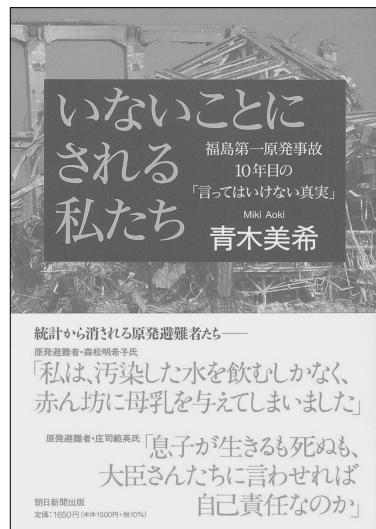 いないことに
される
私たち
福島第一原発事故
10年目の
「言ってはいけない真実」
Miki Aoki
青木美希
統計から消される原発避難者たち――
原発避難者・森松明希子氏
「私は、汚染した水を飲むしかなく、
赤ん坊に母乳を与えてしまいました」
原発避難者・庄司範英氏
「息子が生きるも死ぬも、
大臣さんたちに言わせれば
自己責任なのか」
朝日新聞出版
定価：1650円（本体1500円+税10%）